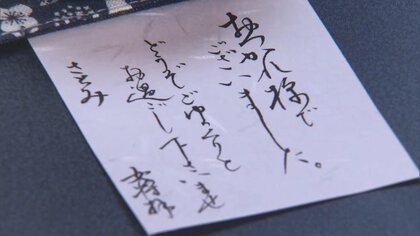 お疲れ様で
ございました。
どうぞごゆるりと
お過ごし下さいませ
さとみ